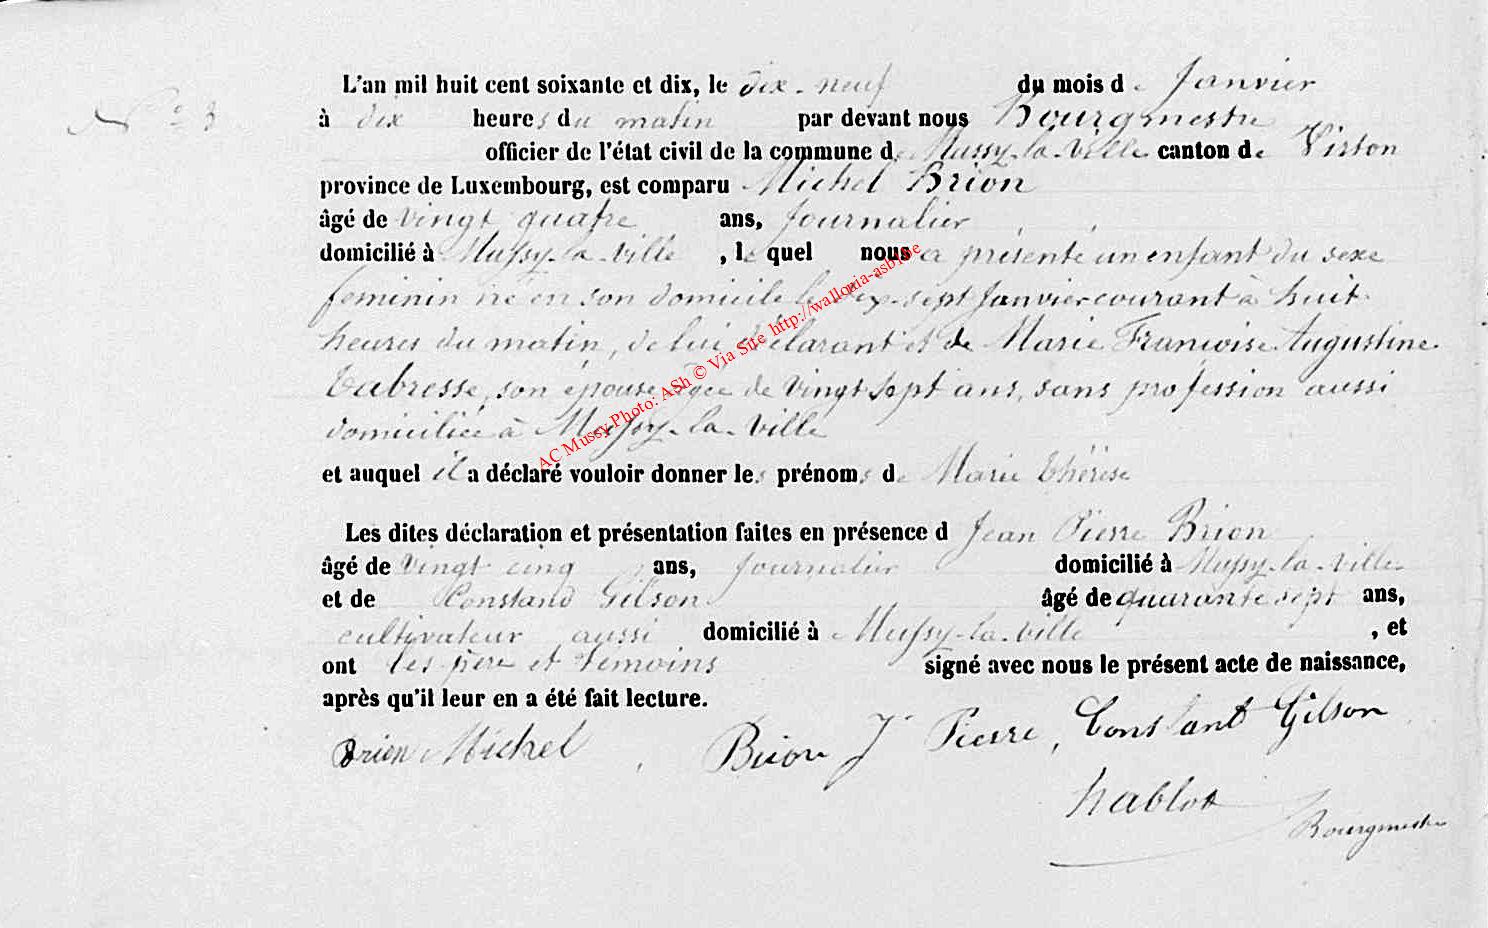 N° 3
L'an mil huit cent soixante et dix, le dix-neuf du mois de Janvier
à dix heures du matin par devant nous Bourgmestre
officier de l'état civil de la commune de Mussy-la-Ville canton de Virton
province de Luxembourg, est comparu Michel Brion
âgé de vingt quatre ans, journalier
domicilié à Mussy-la-Ville, le quel nous a présenté un enfant du sexe
feminin né en son domicile le dix-sept Janvier courant à huit
heures du matin, de lui déclarant et de Marie Francoise Augustine
Tabresse, son épouse âgée de vingt sept ans, sans profession aussi
domiciliée à Mussy-la-Ville
et auquel il a déclaré vouloir donner les prénoms de Marie Thérèse
Les dites déclaration et présentation faites en présence d Jean Pierre Brion
âgé de vingt cinq ans, journalier domicilié à Mussy-la-Ville
et de Constand Gilson âgé de quarante sept ans,
cultivateur aussi domicilié à Mussy-la-Ville, et
ont les père et témoins signé avec nous le présent acte de naissance,
après qu'il leur en a été fait lecture.
Brion Michel, Brion J Pierre, Constant Gilson
hablot
Bourgmestre
AC Mussy Photo: ASh © Via Site http://wallonia-asbl.be